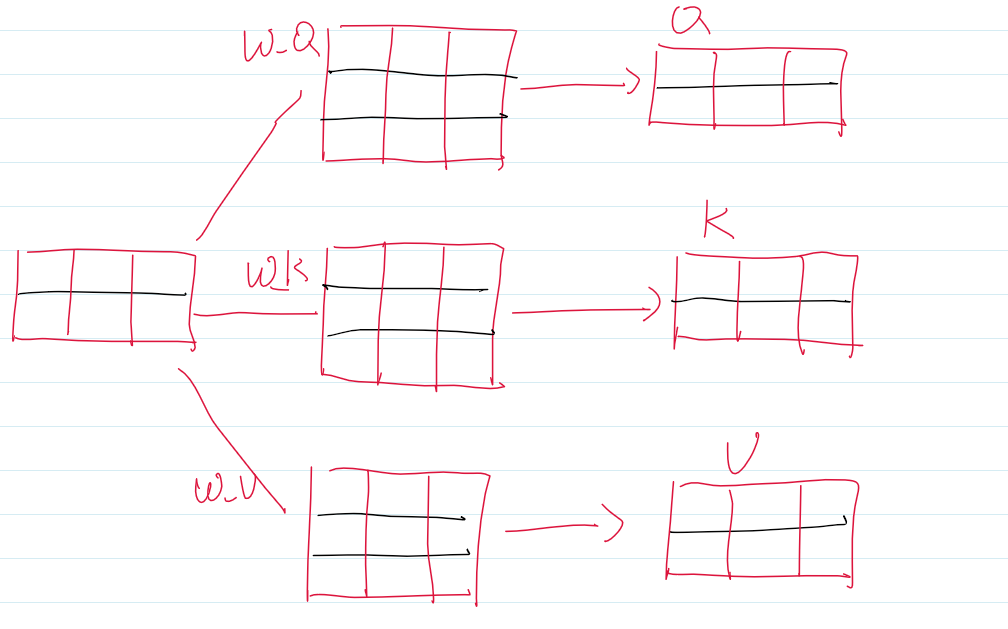 W_Q
Q
W_K
K
W_V
V